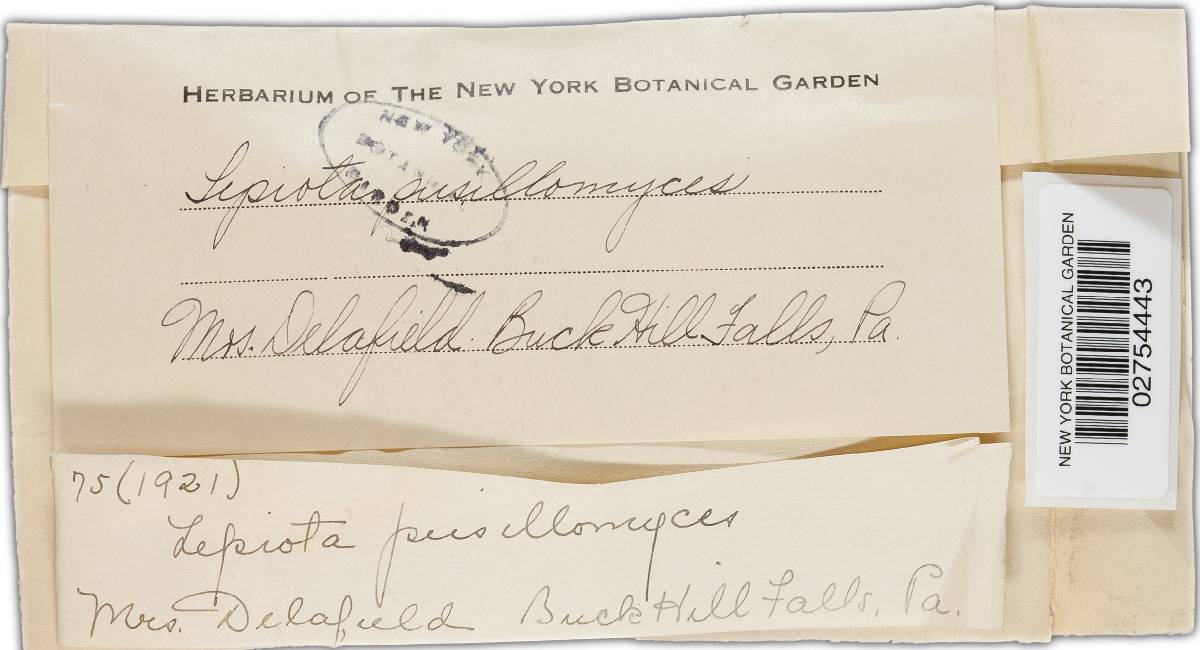 HERBARIUM OF THE NEW YORK BOTANICAL GARDEN
NEW YORK
BOTANICAL
GARDEN
Lepiota pusillomyces
Mrs. Delafield. Buck Hill Falls, Pa.
75 (1921)
Lepiota pusillomyces
Mrs. Delafield Buck Hill Falls, Pa.
NEW YORK BOTANICAL GARDEN
02754443